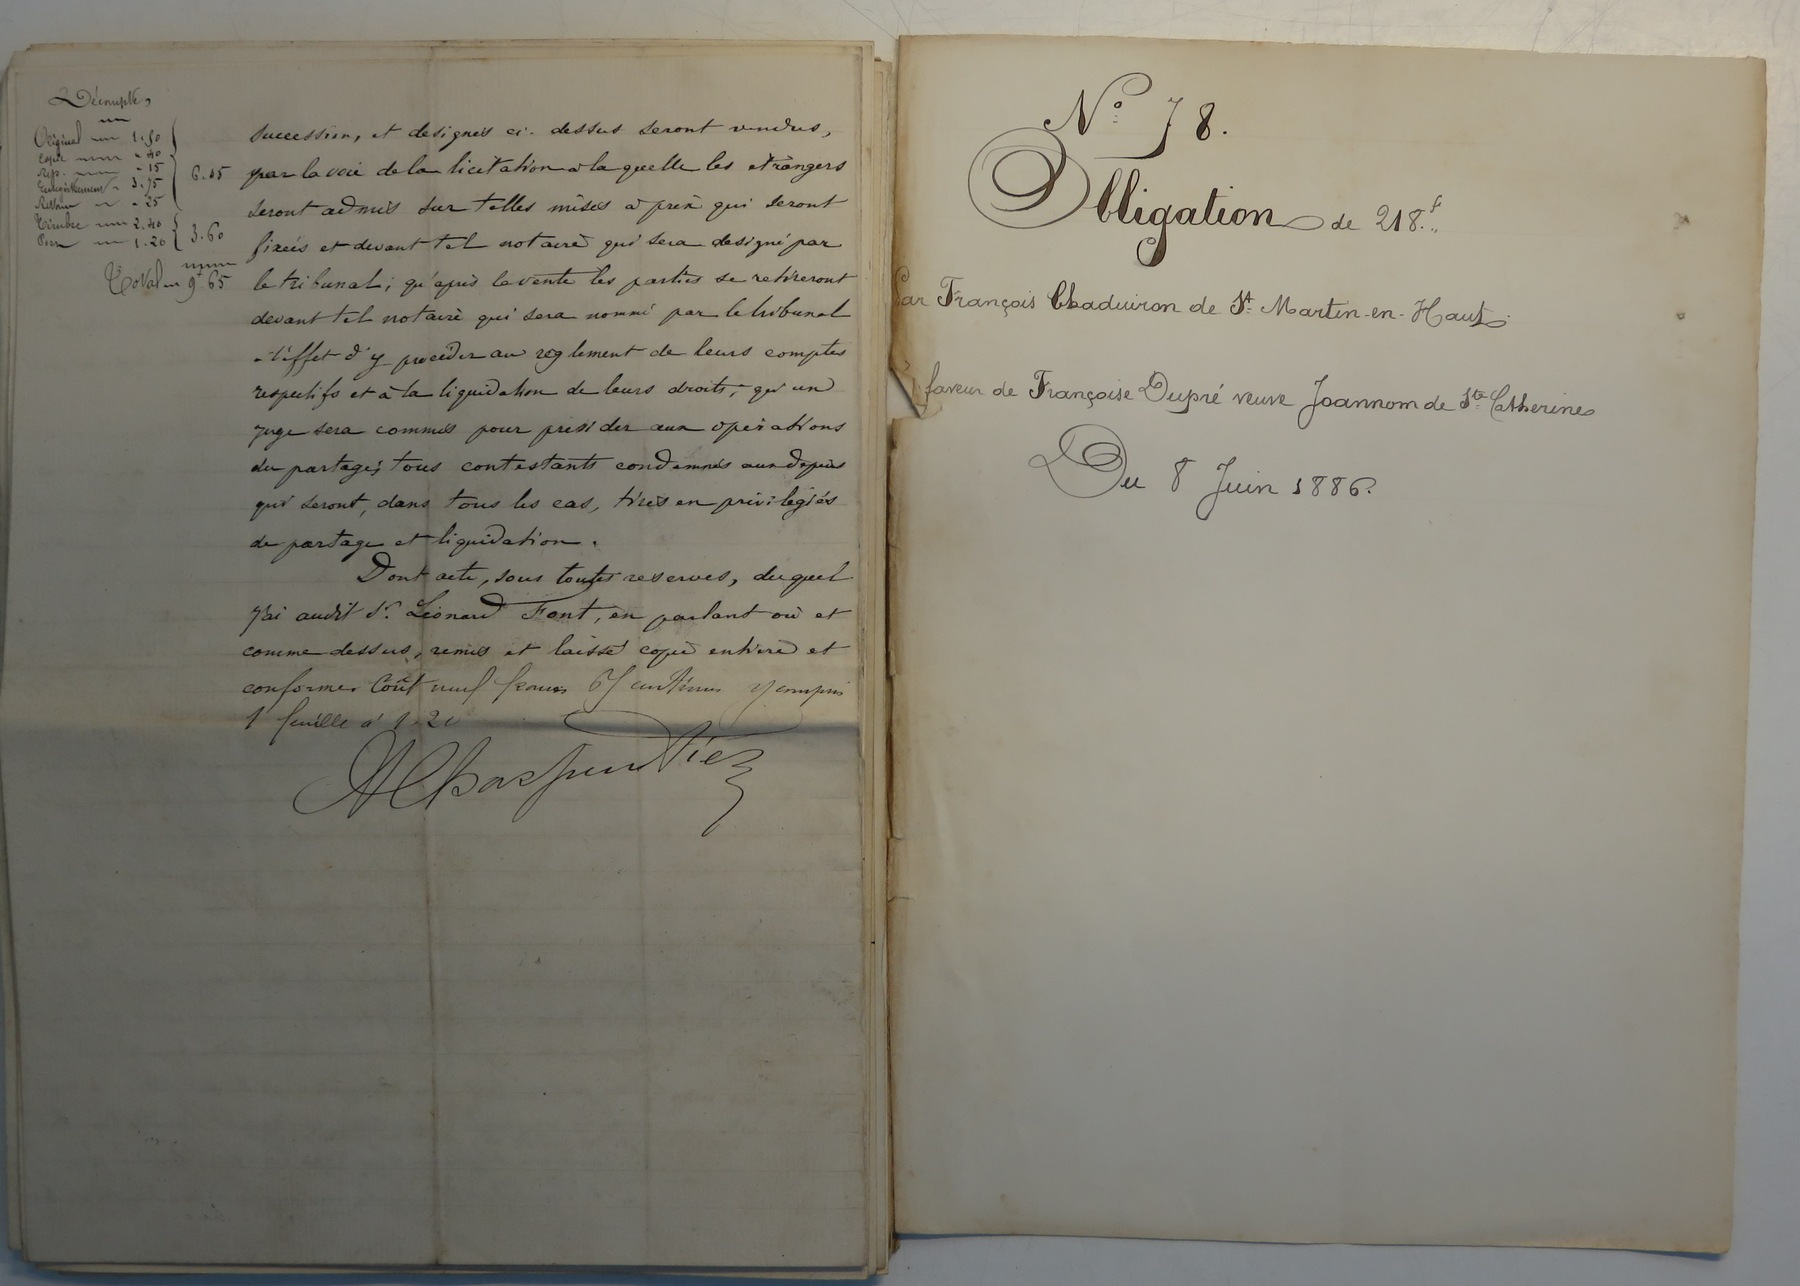 Décompte
Original 1.50
copie " 40
rép. " 15
Enregistrement 3.75
" 25
6.05
Timbre 2.40
1.20
3.60
Total 9f 65
succession, et designés ci-dessus seront vendus,
par la voie de la licitation à la quelle les etrangers
seront admis sur telles mises à prix qui seront
fixées et devant tel notaire qui sera designé par
le tribunal; qu'après la vente les parties se retireront
devant tel notaire qui sera nommé par le tribunal
à l'effet d'y procéder au règlement de leurs comptes
respectifs et à la liquidation de leurs droits; qu'un
juge sera commis pour presider aux opérations
du partage; tous contestants condamnés aux dépens
qui seront, dans tous les cas, tirés en privilégiés
de partage et liquidation.
Dont acte, sous toutes reserves, duquel
j'ai audit Sr. Léonard Font, en parlant où et
comme dessus, remis et laissé copie entière et
conforme. Coût neuf francs 65 centimes y compris
1 feuille à 1.20
ACharpentier
No. 78.
Obligation de 218.f"
Par François Chaduiron de St. Martin-en-Haut
faveur de Françoise Dupré veuve Joannom de Ste. Catherine
Du 8 Juin 1886.